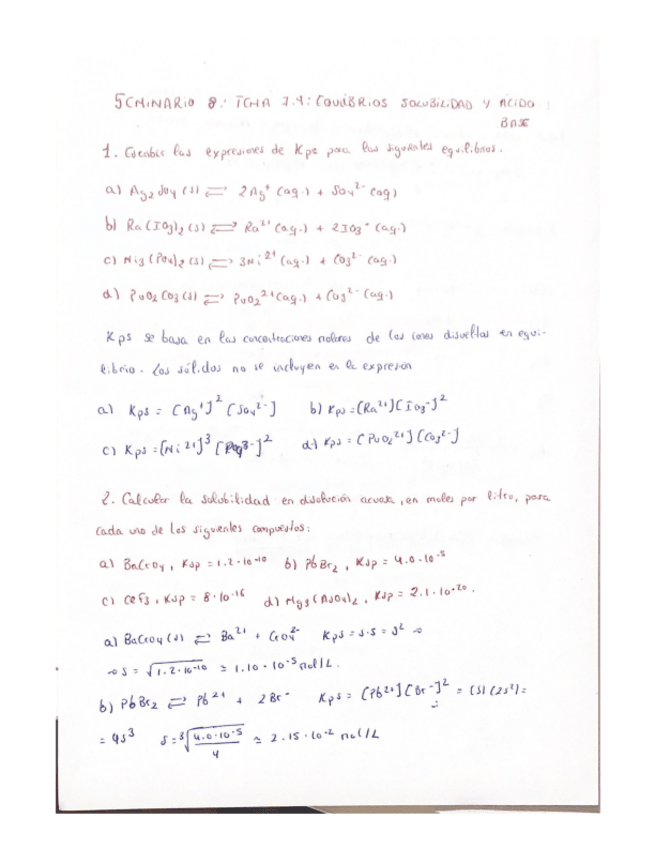 SEMINARIO 8: TEMA 7.4: EQUILIBRIOS SOLUBILIDAD Y ACIDO
BASE
1. Escribir las expresiones de Kps para los siguientes equilibrios.
a) Ag2SO4 (s) ⇌ 2Ag⁺ (aq.) + SO4²⁻ (aq)
b) Ra(IO3)2 (s) ⇌ Ra²⁺ (aq.) + 2IO3⁻ (aq.)
c) Ni3(PO4)2 (s) ⇌ 3Ni²⁺ (aq.) + CO3²⁻ (aq.)
d) PuO2CO3 (s) ⇌ PuO2²⁺ (aq.) + CO3²⁻ (aq.)
Kps se basa en las concentraciones molares de los iones disueltos en equi-
librio. Los sólidos no se incluyen en la expresión
a) Kps = [Ag⁺]² [SO4²⁻] b) Kps = [Ra²⁺][IO3⁻]²
c) Kps = [Ni²⁺]³ [PO4³⁻]² d) Kps = [PuO2²⁺][CO3²⁻]
2. Calcular la solubilidad en disolución acuosa, en moles por litro, para
cada uno de los siguientes compuestos:
a) BaCrO4, Ksp = 1.2·10⁻¹⁰ b) PbBr2, Ksp = 4.0·10⁻⁵
c) CeF3, Ksp = 8·10⁻¹⁶ d) Mg3(AsO4)2, Ksp = 2.1·10⁻²⁰.
a) BaCrO4 (s) ⇌ Ba²⁺ + CrO4²⁻ Kps = s·s = s² ⇒
⇒ s = √1.2·10⁻¹⁰ ≃ 1.10·10⁻⁵ mol/L.
b) PbBr2 ⇌ Pb²⁺ + 2Br⁻ Kps = [Pb²⁺][Br⁻]² = (s)(2s²) =
= 4s³ s = ³√4.0·10⁻⁵/4 ≃ 2.15·10⁻² mol/L